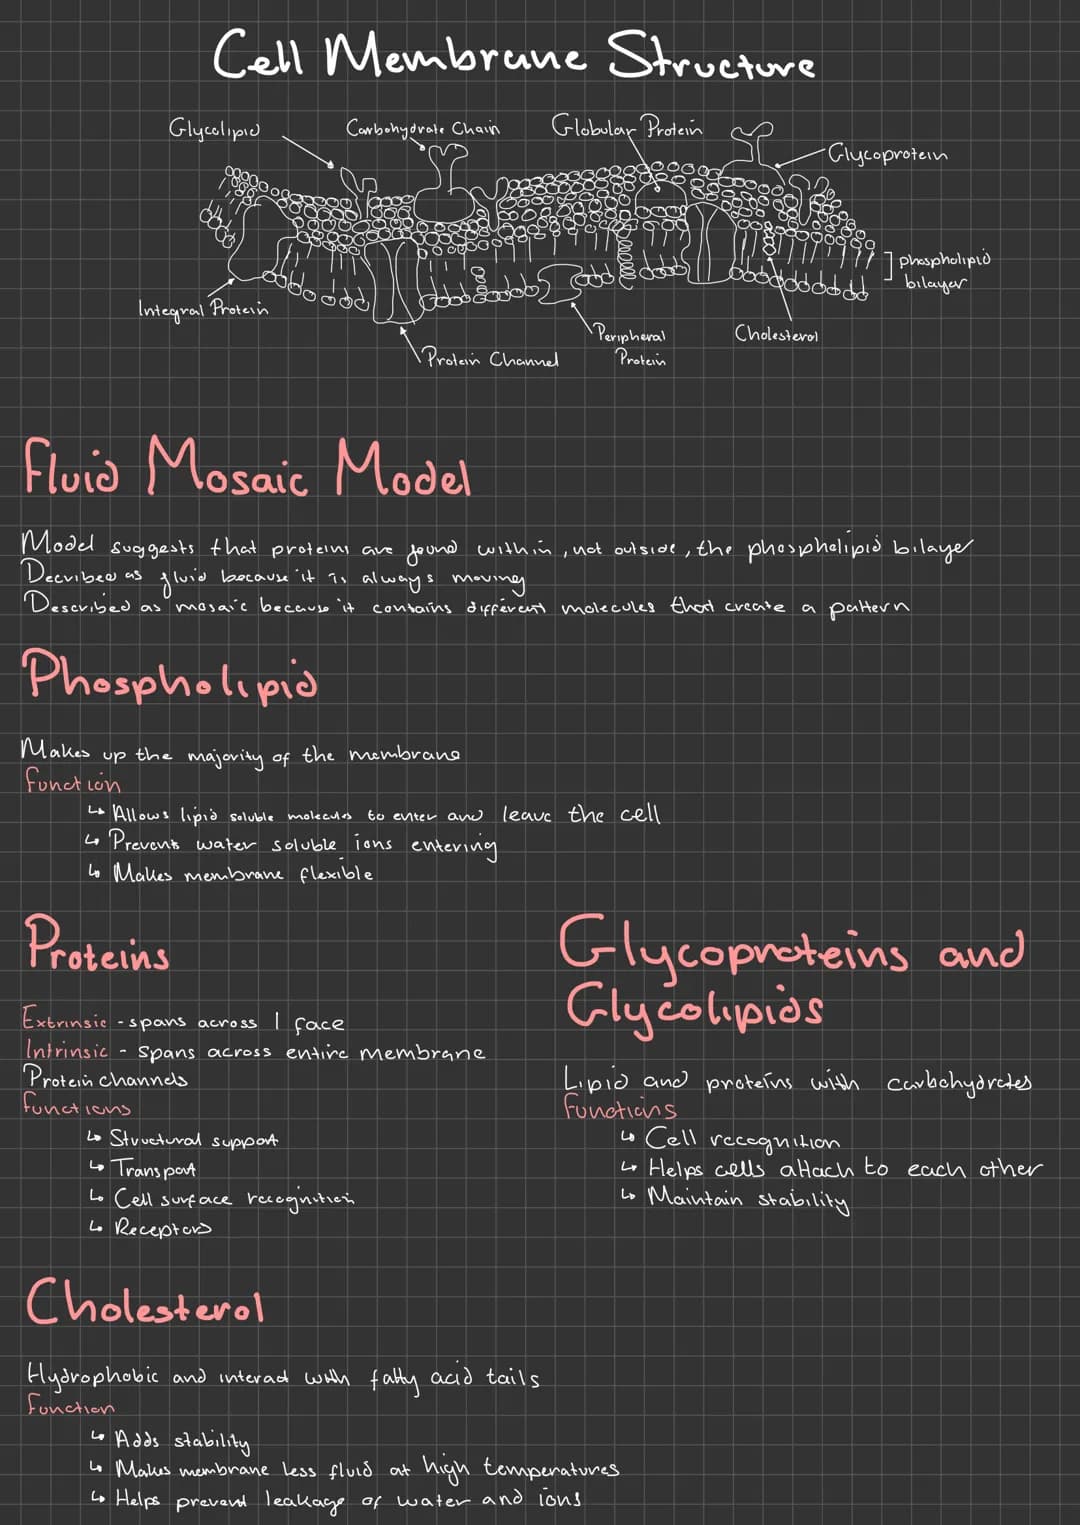 Cell Membrane Structure
Glycolipid
Carbohydrate Chain
Globular Protein
Glycoprotein
phospholipid
bilayer
Integral Protein
Peripheral
Protein
Cholesterol
Protein Channel
Fluid Mosaic Model
Model suggests that proteins are found within, not outside, the phospholipid bilayer
Decribed as fluid because it is always moving
Described as mosaic because it contains different molecules that create a pattern
Phospholipid
Makes up the majority of the membrane
Function
↳ Allows lipid soluble molecules to enter and leave the cell
↳ Prevents water soluble ions entering
↳ Makes membrane flexible
Proteins
Extrinsic - spans across 1 face
Intrinsic - spans across entire membrane
Protein channels
Functions
↳ Structural support
↳ Transport
↳ Cell surface recognition
↳ Receptors
Glycoproteins and
Glycolipids
Lipid and proteins with carbohydrates
Functions
↳ Cell recognition
↳ Helps cells attach to each other
↳ Maintain stability
Cholesterol
Hydrophobic and interact with fatty acid tails
Function
↳ Adds stability
↳ Makes membrane less fluid at high temperatures
↳ Helps prevent leakage of water and ions